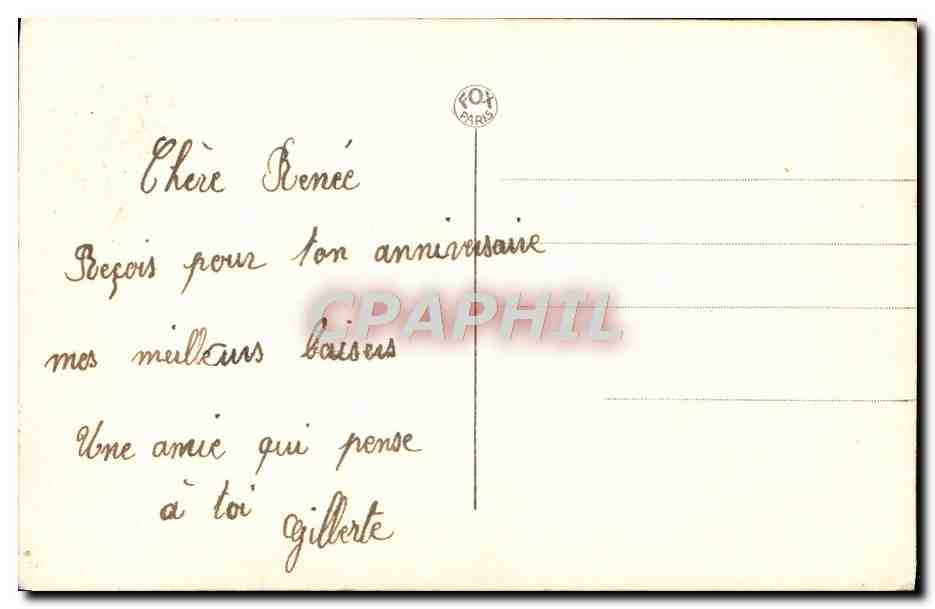 FOX
PARIS
Chère Renée
Reçois pour ton anniversaire
CPAPHIL
mes meilleurs baisers
Une amie qui pense
à toi
Gilberte